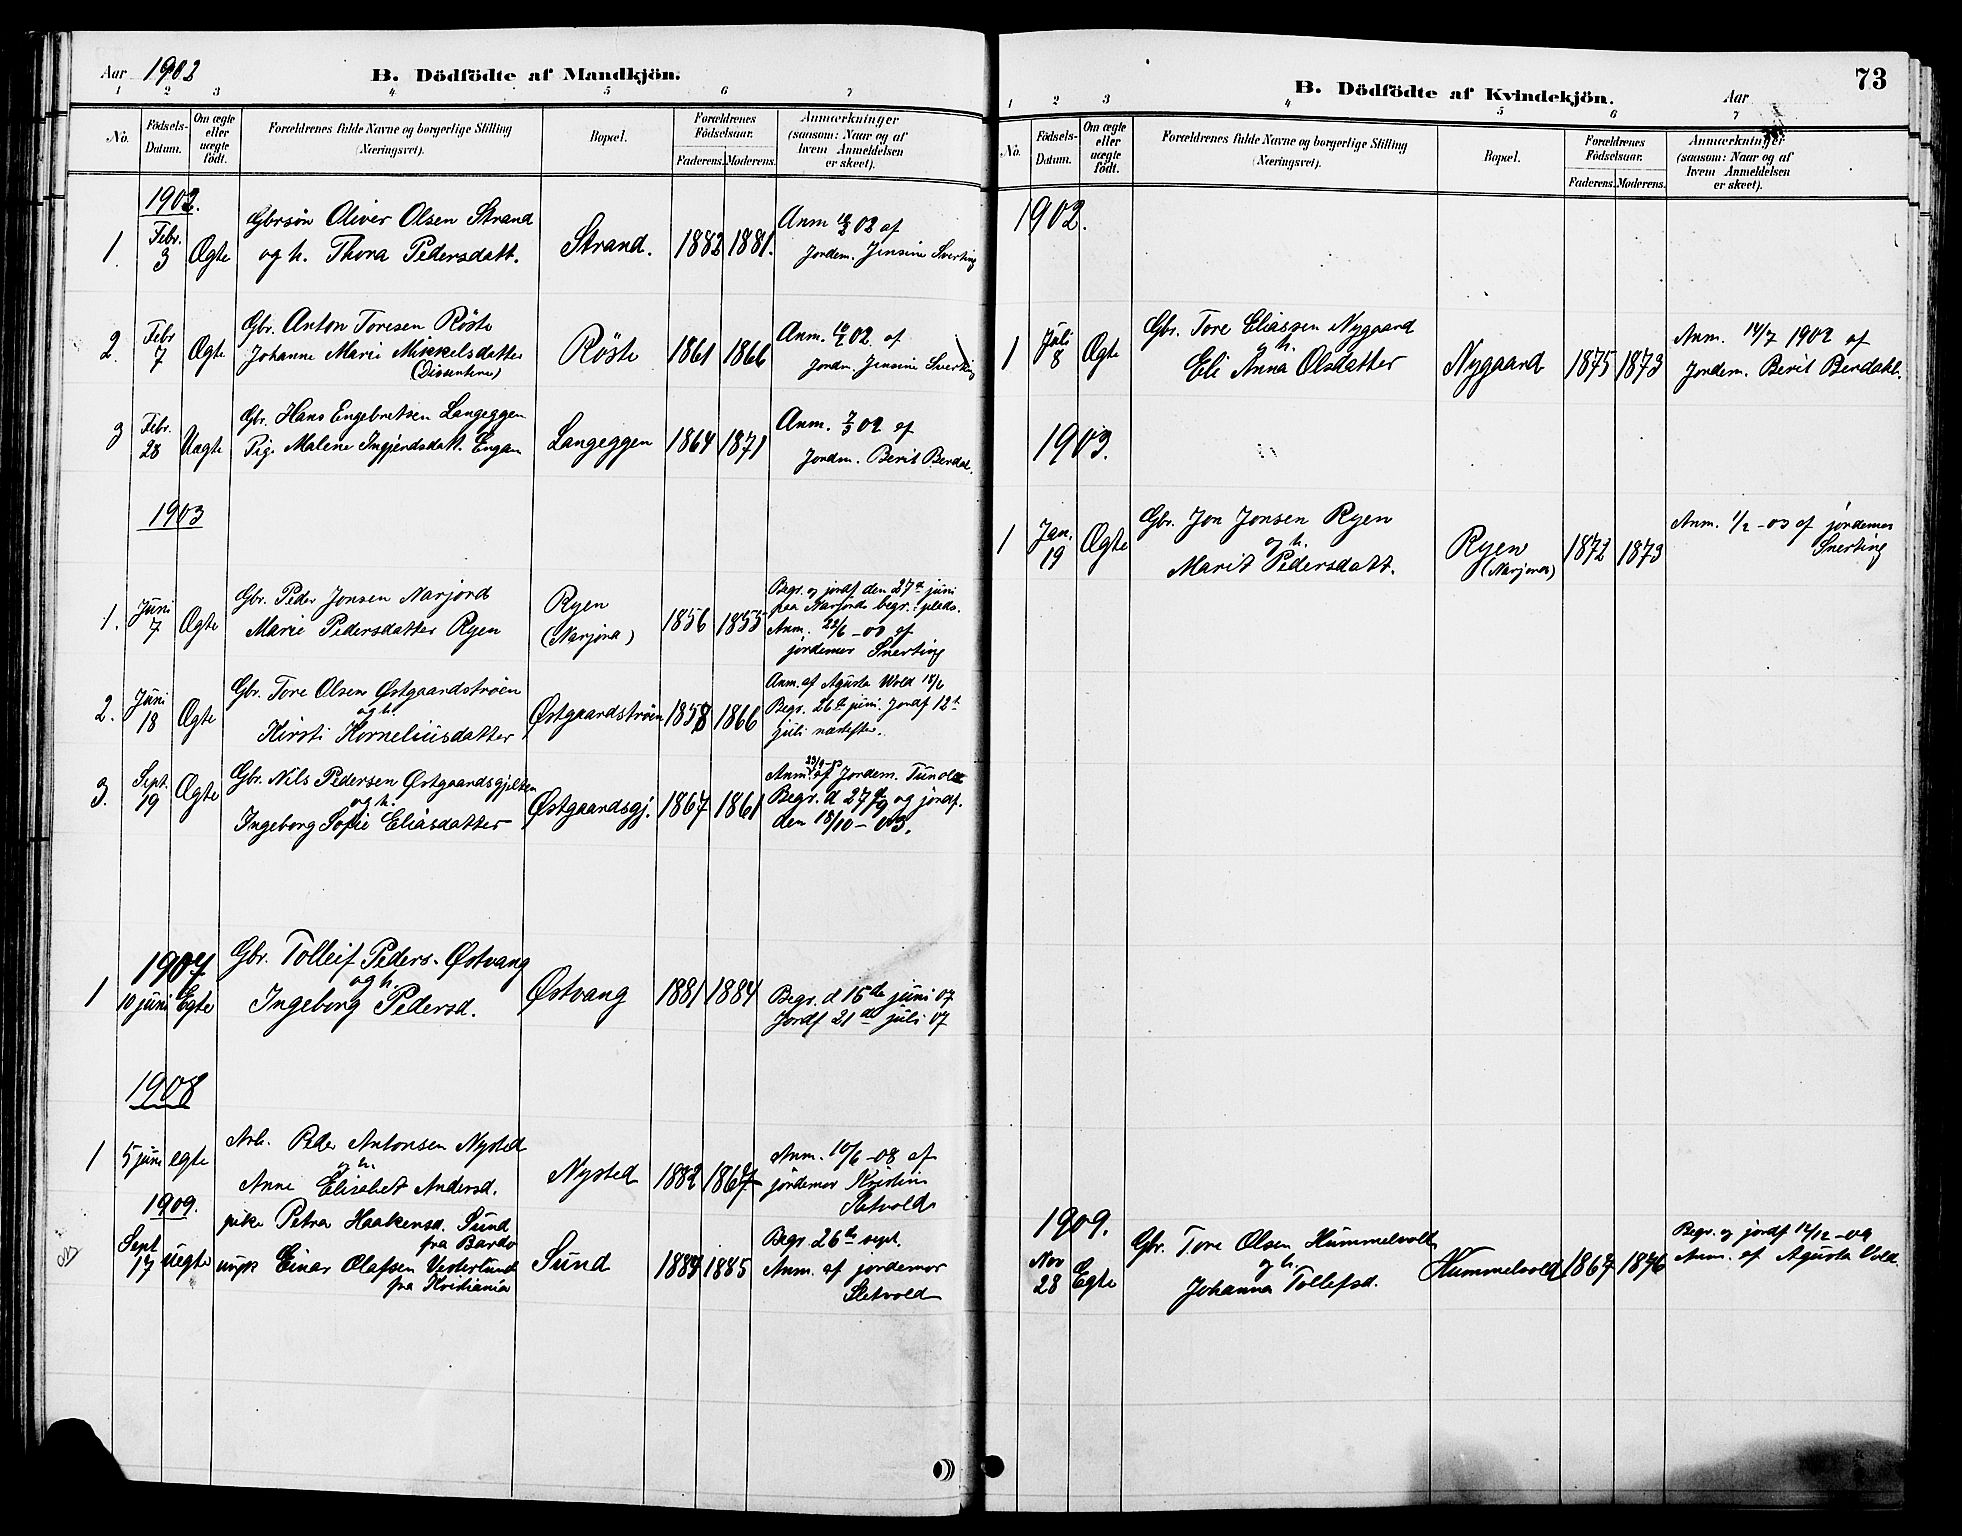 Aar 1902
B. Dödfödte af Mandkjön.
1 2 3 4 5 6 7
No.
Födsels-Datum.
Om ægte eller uægte födt.
Forældrenes fulde Navne og borgerlige Stilling (Næringsvei).
Bopæl.
Forældrenes Födselsaar.
Faderens. Moderens.
Anmærkninger (saasom: Naar og af hvem Anmeldelsen er skeet).
1902.
1. Febr. 3 Ægte
Gbrsøn Oliver Olsen Strand
og h. Thora Pedersdatt.
Strand. 1882 1881.
Anm 02 af
Jordem. Jensine Snerting
2. Febr 7 Ægte
Gbr. Anton Toresen Röste
Johanne Marie Mikkelsdatter
(Dissentere)
Röste 1861 1866
Anm. 02 af
Jordm. Jensine Snerting
3 Febr. 28 Uægte
Gbr. Hans Engebretsen Langeggen
Pig. Malene Ingjerdsdatt. Engan
Langeggen 1864 1871
Anm. 7/3 02 af
Jordm. Berit Berdal.
1903
1. Juni 7 Ægte
Gbr. Peder Jonsen Narjord
Marie Pedersdatter Ryen
Ryen
(Narjora)
1856 1855
Begr. og jordf den 27de juni
paa Narjords begr.plads.
Anm. 22/6 -03 af
jordemor Snerting
2. Juni 18 Ægte
Gbr. Tore Olsen Østgaardstrøen
og h.
Kirsti Korneliusdatter
Østgaardstrøen 1858 1866
Anm. af Agusta Wold 18/6
Begr. 26de juni. Jordf 12te
juli næstefter.
3. Sept. 19 Ægte
Gbr. Nils Pedersen Østgaardsgjelten
og h.
Ingeborg Sofie Eliasdatter
Østgaardsgj. 1867 1861
Anm. af Jordem.
Begr. d 27/9 og jordf.
den 18/10 - 03.
1907
1 10 juni Egte
Gbr. Tolleif Peders. Østvang
og h.
Ingeborg Pedersd.
Østvang 1881 1884
Begr. d 15de juni 07
Jordf 21de juli 07
1908
1 5 juni egte
Arb. Peder Antonsen Nysted
og h.
Anne Elisabet Andersd.
Nysted 1882 1867
Anm. 10/6 -08 af
jordemor Kristin
Sletvold
1909.
Sept 17 uegte
pike Petra Haakensd. Sund
fra Bardo
ungk Einar Olafsen Vesterlund
fra Kristiania
Sund 1884 1885
Begr 26de sept.
Anm. af jordemor
Sletvold
73
B. Dödfödte af Kvindekjön.
Aar
1 2 3 4 5 6 7
No.
Födsels-Datum.
Om ægte eller uægte födt.
Forældrenes fulde Navne og borgerlige Stilling (Næringsvei).
Bopæl.
Forældrenes Födselsaar.
Faderens. Moderens.
Anmærkninger (saasom: Naar og af hvem Anmeldelsen er skeet).
1902.
1 Juli 8 Ægte
Gbr. Tore Eliassen Nygaard
og h.
Eli Anna Olsdatter
Nygaard 1875 1873
Anm. 14/7 1902 af
Jordem. Berit Berdahl.
1903.
1 Jan. 19 Ægte
Gbr. Jon Jonsen Ryen
og h.
Marit Pedersdatt.
Ryen
(Narjora)
1872 1873
Anm. 1/2 -03 af jordemor
Snerting
1909.
Nov 28 Egte
Gbr. Tore Olsen Hummelvold
og h.
Johanna Tollefsd.
Hummelvold 1867 1876
Begr. og jordf 12/12 -09
Anm. af Agusta Vold.